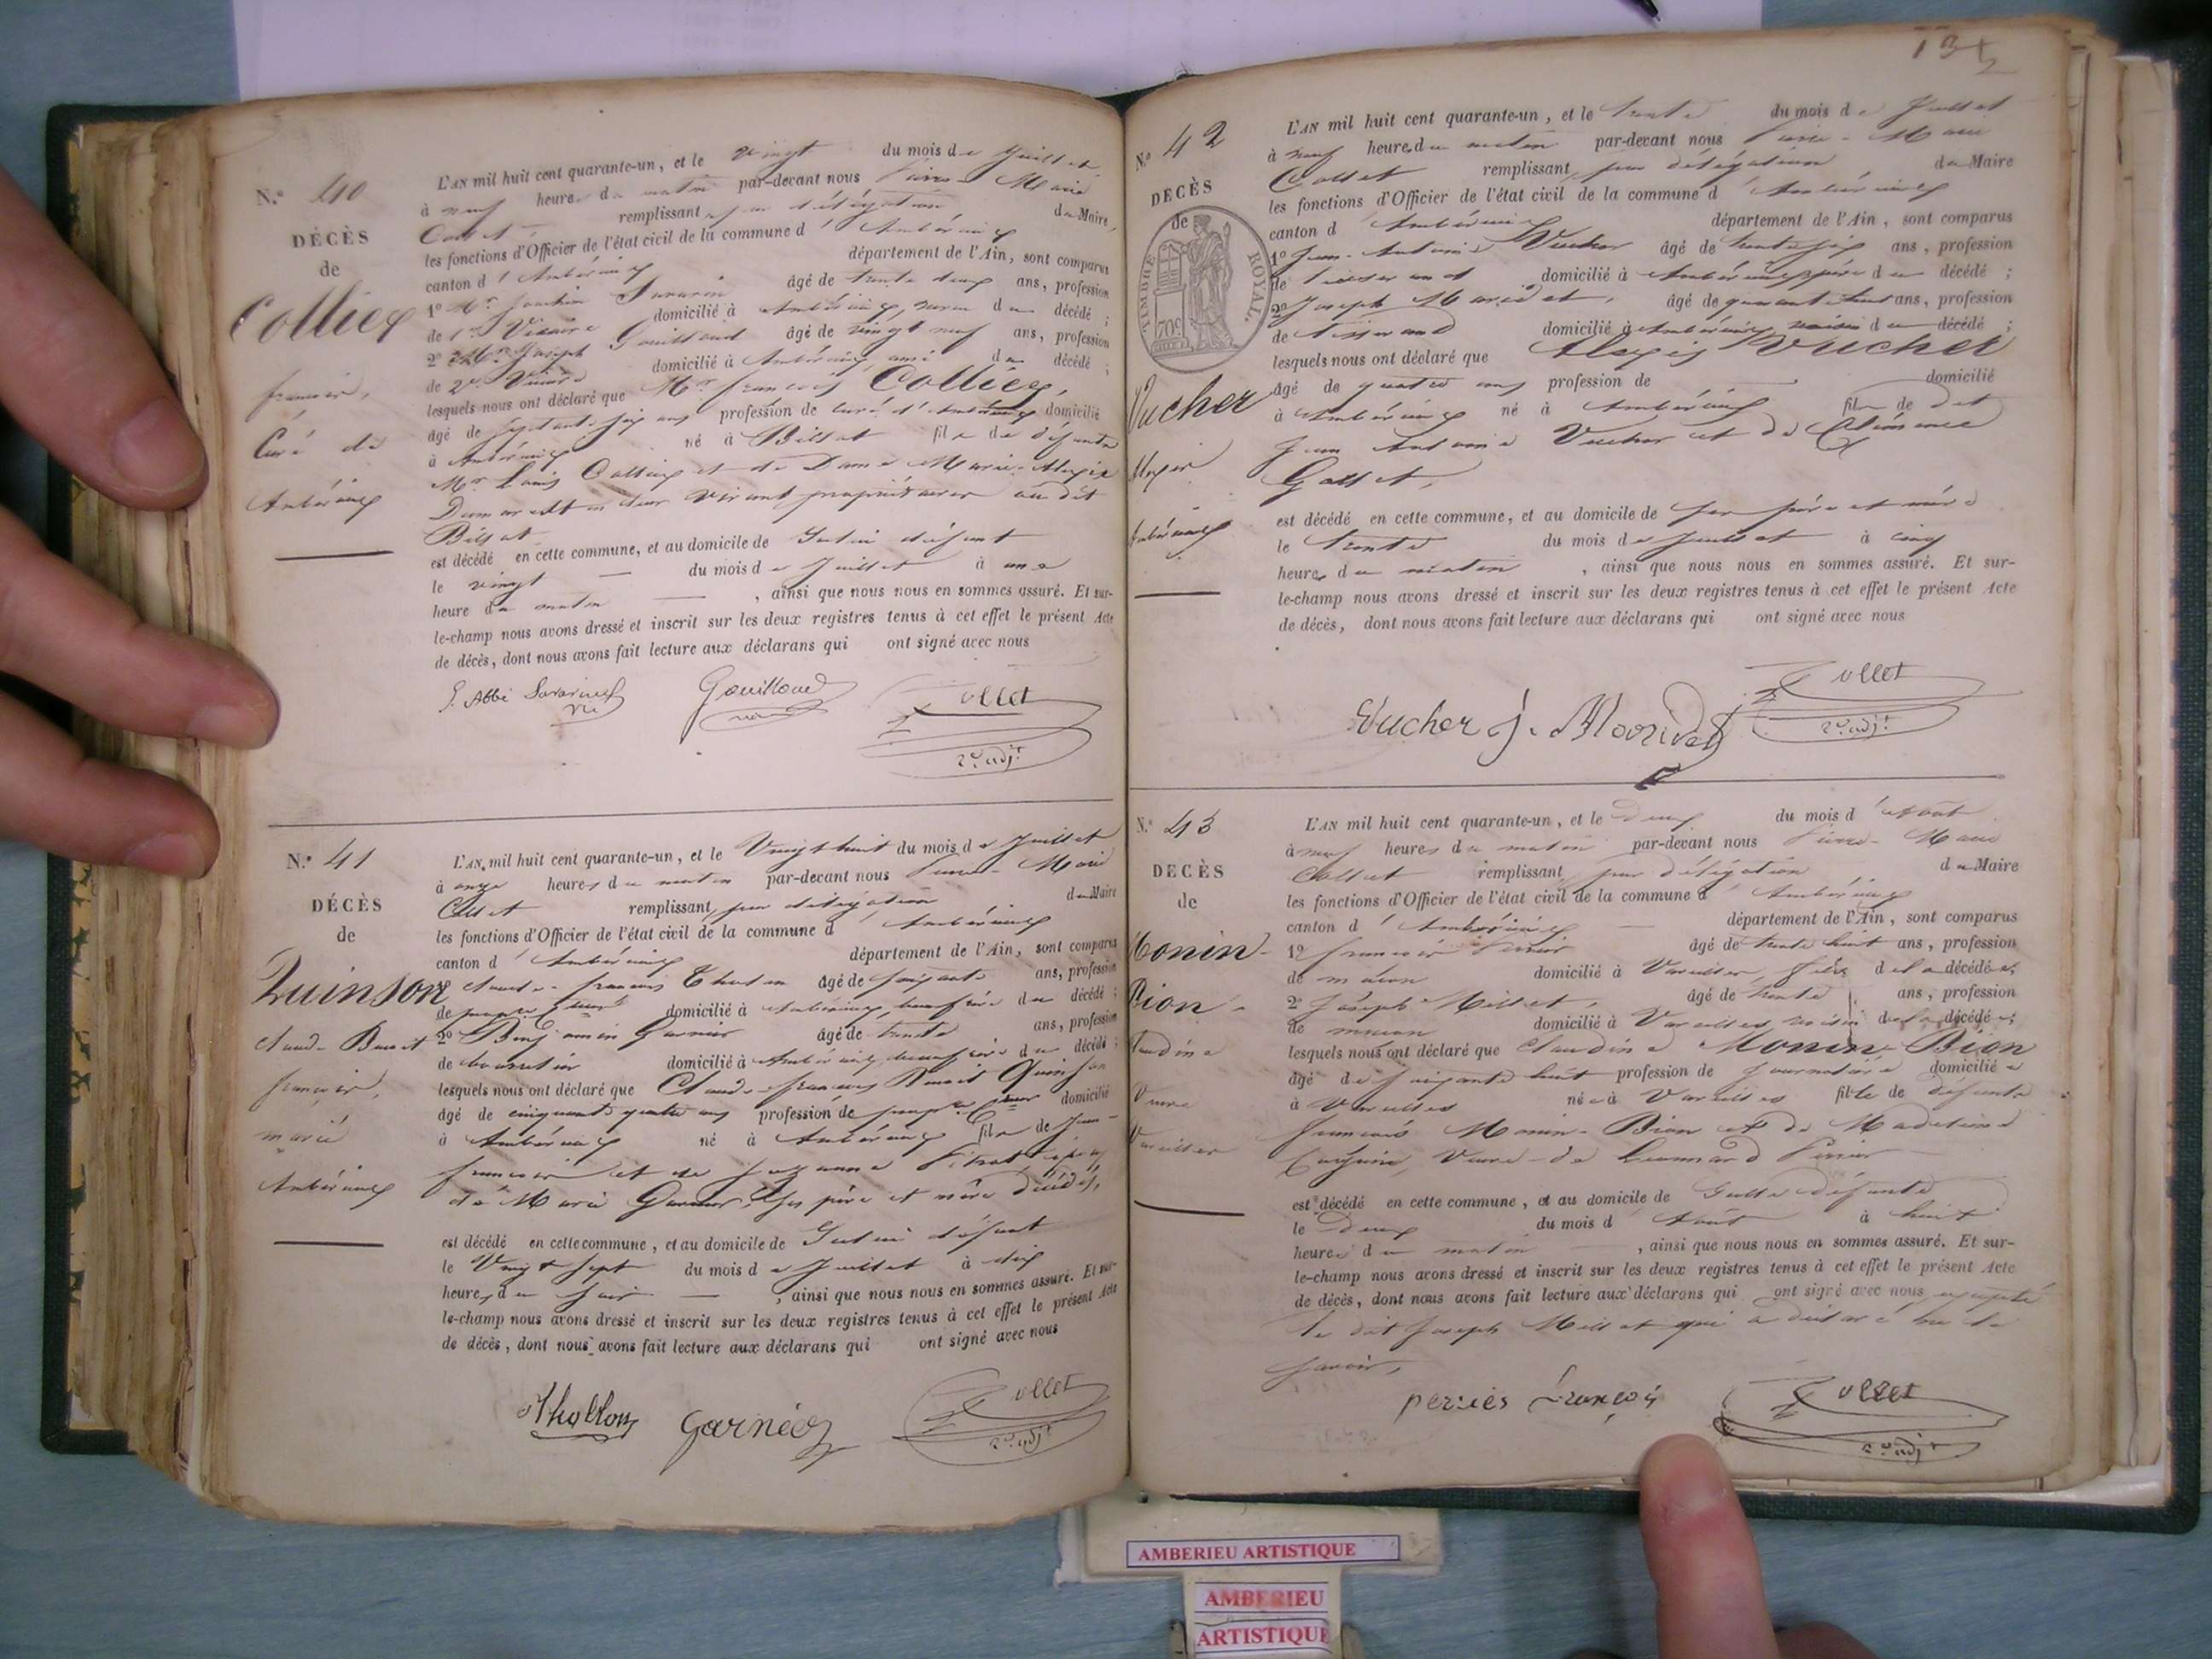 N.° 40
DÉCÈS
de
Colliex
françois,
Curé de
Ambérieux
L'AN mil huit cent quarante-un, et le vingt du mois de Juillet
à neuf heures du matin par-devant nous Pierre-Marie
Collet remplissant par délégation du Maire,
les fonctions d'Officier de l'état civil de la commune d'Ambérieux
canton d'Ambérieux département de l'Ain, sont comparus
1° Mr Joachim Savarin âgé de trente deux ans, profession
de 1er Vicaire domicilié à Ambérieux, du décédé ;
2° Mr Joseph Gouilloud âgé de vingt neuf ans, profession
de 2e Vicaire domicilié à Ambérieux ami du décédé ;
lesquels nous ont déclaré que Mr françois Colliex,
âgé de Septante six ans profession de Curé d'Ambérieux domicilié
à Ambérieux né à Billiat fils de défunts
Mr Louis Colliex et de Dame Marie-Alexis
de leur vivant propriétaires au dit
Billiat
est décédé en cette commune, et au domicile de Gelui défunt
le vingt du mois de Juillet à une
heure du matin, ainsi que nous nous en sommes assuré. Et sur-
le-champ nous avons dressé et inscrit sur les deux registres tenus à cet effet le présent Acte
de décès, dont nous avons fait lecture aux déclarans qui ont signé avec nous
Gouilloud Collet
2e adjt
N.° 41
DÉCÈS
de
Quinson
Claude-Benoit
françois,
marié
Ambérieux
L'AN mil huit cent quarante-un, et le Vingt huit du mois de Juillet
à onze heures du matin par-devant nous Pierre-Marie
Collet remplissant, par délégation du Maire
les fonctions d'Officier de l'état civil de la commune d'Ambérieux
canton d'Ambérieux département de l'Ain, sont comparus
Claude-françois Tholon âgé de soixante ans, profession
de domicilié à Ambérieux, beau frère du décédé ;
2° Benjamin Garnier âgé de trente ans, profession
de domicilié à Ambérieux, du décédé ;
lesquels nous ont déclaré que Claude-françois Benoit Quinson
âgé de cinquante quatre ans profession de domicilié
à Ambérieux né à Ambérieux fils de Jean-
françois et de Suzanne époux
de Marie Garnier, Ses père et mère décédés,
est décédé en cette commune, et au domicile de Gelui défunt
le Vingt Sept du mois de Juillet à dix
heures du Soir, ainsi que nous nous en sommes assuré. Et sur-
le-champ nous avons dressé et inscrit sur les deux registres tenus à cet effet le présent Acte
de décès, dont nous avons fait lecture aux déclarans qui ont signé avec nous
Garnier Collet
2e adjt
N.° 42
DÉCÈS
de
TIMBRE ROYAL.
70c
Vucher
Alexis
Ambérieux
L'AN mil huit cent quarante-un, et le trente du mois de Juillet
à neuf heures du matin par-devant nous Pierre-Marie
Collet remplissant, par délégation du Maire
les fonctions d'Officier de l'état civil de la commune d'Ambérieux
canton d'Ambérieux département de l'Ain, sont comparus
1° Jean-Antoine Vucher âgé de trente six ans, profession
de tisserand domicilié à Ambérieux, père du décédé ;
2° Joseph âgé de quarante huit ans, profession
de tisserand domicilié à Ambérieux voisin du décédé ;
lesquels nous ont déclaré que Alexis Vucher
âgé de quatre ans profession de domicilié
à Ambérieux né à Ambérieux fils de dit
Jean Antoine Vucher et de Clémence
est décédé en cette commune, et au domicile de ses père et mère
le trente du mois de Juillet à cinq
heures du matin, ainsi que nous nous en sommes assuré. Et sur-
le-champ nous avons dressé et inscrit sur les deux registres tenus à cet effet le présent Acte
de décès, dont nous avons fait lecture aux déclarans qui ont signé avec nous
Vucher Collet
2e adjt
N.° 43
DÉCÈS
de
Monin-
Bion-
Claudine
Veuve
Vareilles
L'AN mil huit cent quarante-un, et le deux du mois d'Août
à neuf heures du matin par-devant nous Pierre-Marie
Collet remplissant, par délégation du Maire
les fonctions d'Officier de l'état civil de la commune d'Ambérieux
canton d'Ambérieux département de l'Ain, sont comparus
1° françois Perrier âgé de trente huit ans, profession
de maçon domicilié à Vareilles, fils de la décédée ;
2° Joseph Millet, âgé de trente ans, profession
de maçon domicilié à Vareilles voisin de la décédée ;
lesquels nous ont déclaré que Claudine Monin-Bion
âgé de soixante huit profession de Journalière domiciliée
à Vareilles née à Vareilles fille de défunts
françois Monin-Bion et de Madeleine
Veuve de Leonnard Perrier
est décédé en cette commune, et au domicile de Gelle défunte
le deux du mois d'Août à huit
heures du matin, ainsi que nous nous en sommes assuré. Et sur-
le-champ nous avons dressé et inscrit sur les deux registres tenus à cet effet le présent Acte
de décès, dont nous avons fait lecture aux déclarans qui ont signé avec nous excepté
le dit Joseph Millet qui a déclaré ne le
savoir,
perriès françois Collet
2e adjt
AMBERIEU ARTISTIQUE
AMBERIEU
ARTISTIQUE